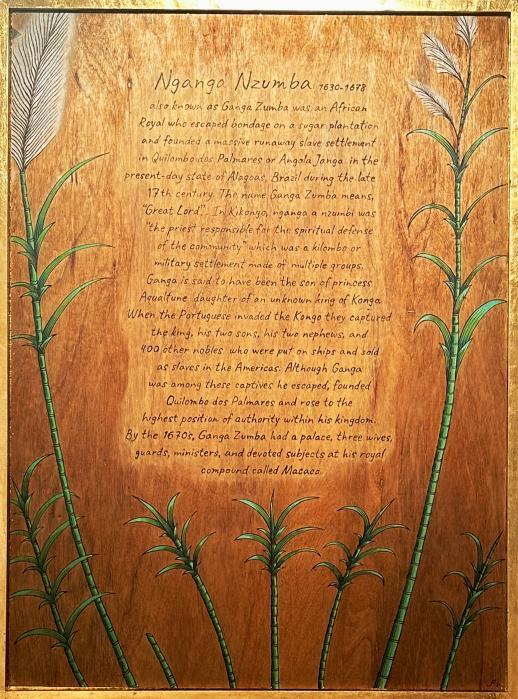 Nganga Nzumba 1630-1678
also known as Ganga Zumba was an African
Royal who escaped bondage on a sugar plantation
and founded a massive runaway slave settlement
in Quilombo dos Palmares or Angala Janga in the
present-day state of Alagoas, Brazil during the late
17th century. The name Ganga Zumba means,
"Great Lord". In Kikongo, nganga a nzumbi was
"the priest responsible for the spiritual defense
of the community" which was a kilombo or
military settlement made of multiple groups.
Ganga is said to have been the son of princess
Aqualtune daughter of an unknown king of Konga.
When the Portuguese invaded the Kongo they captured
the king, his two sons, his two nephews, and
400 other nobles who were put on ships and sold
as slaves in the Americas. Although Ganga
was among these captives he escaped, founded
Quilombo dos Palmares and rose to the
highest position of authority within his kingdom.
By the 1670s, Ganga Zumba had a palace, three wives,
guards, ministers, and devoted subjects at his royal
compound called Macaco.